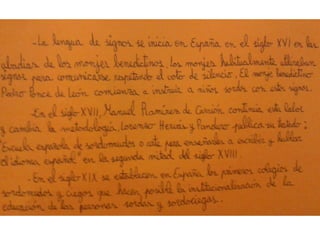 -La lengua de signos se inicia en España en el siglo XVI en las
abadías de los monjes benedictinos los monjes habitualmente utilizaban
signos para comunicarse respetando el voto de silencio. El monje benedictino
Pedro Ponce de León comienza a instruir a niños sordos con estos signos.
-En el siglo XVII, Manuel Ramírez de Carrión continúa esta labor
y cambia la metodología. Lorenzo Hervás y Panduro publica su tratado;
"Escuela española de sordomudos o arte para enseñarles a escribir y hablar
el idioma español" en la segunda mitad del siglo XVIII.
-En el siglo XIX se establecen en España los primeros colegios de
sordomudos y ciegos que hacen posible la institucionalización de la
educación de las personas sordas y sordociegas.